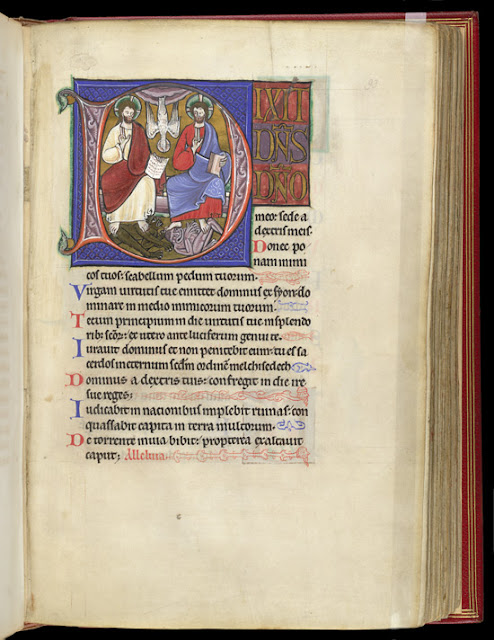 D IXIT
DN̄S
DN̄O
meo: sede a
dextris meis.
Donec po
nam inimi
cos tuos: scabellum pedum tuorum.
Virgam uirtutis tue emittet dominus ex syon: do
minare in medio inimicorum tuorum.
Tecum principium in die uirtutis tue in splendo
rib; sc̄oꝝ: ex utero ante luciferum genui te.
Iurauit dominus et non penitebit eum: tu es sa
cerdos in eternum scd̄m ordinē melchisedech.
Dominus a dextris tuis: confregit in die ire
sue reges.
Iudicabit in nacionibus implebit ruinas: con
quassabit capita in terra multorum.
De torrente in uia bibit: propterea exaltauit
caput; Alleluia.